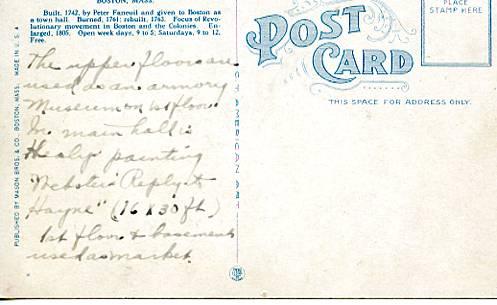 BOSTON, MASS.
Built, 1742, by Peter Faneuil and given to Boston as
a town hall. Burned, 1761; rebuilt, 1763. Focus of Revo-
lutionary movement in Boston and the Colonies. En-
larged, 1805. Open week days, 9 to 5; Saturdays, 9 to 12.
Free.
The upper floors are
used as an armory
Museum on 1st floor
In main hall is
Healy painting
"Webster's Reply to
Hayne" (16 x 30 ft)
1st floor & basement
used as market.
PUBLISHED BY MASON BROS. & CO., BOSTON, MASS. MADE IN U. S. A
POST
CARD
PLACE
STAMP HERE
THIS SPACE FOR ADDRESS ONLY.